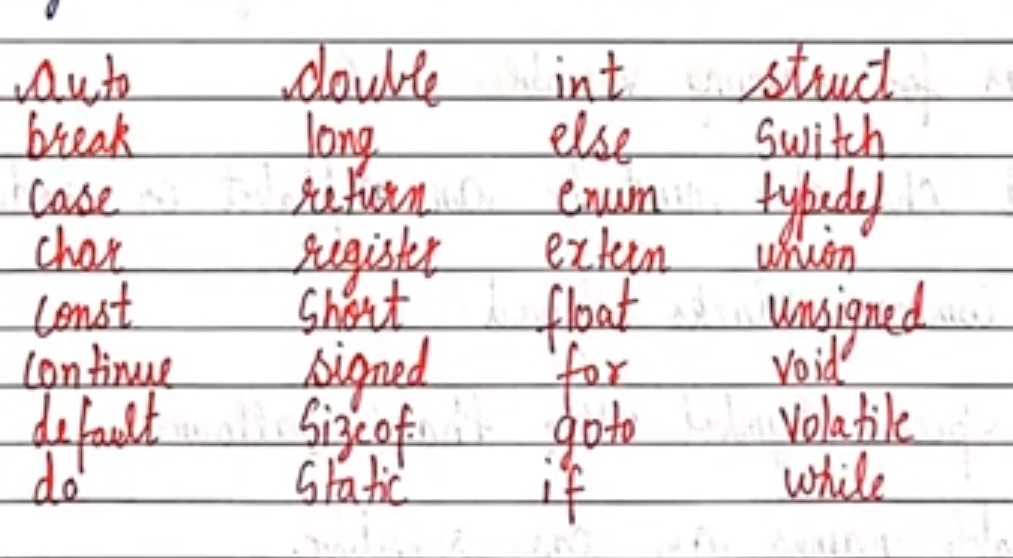 auto double int struct
break long else Switch
case return enum typedef
char register extern union
const Short float unsigned
continue signed for void
default Sizeof goto volatile
do Static if while